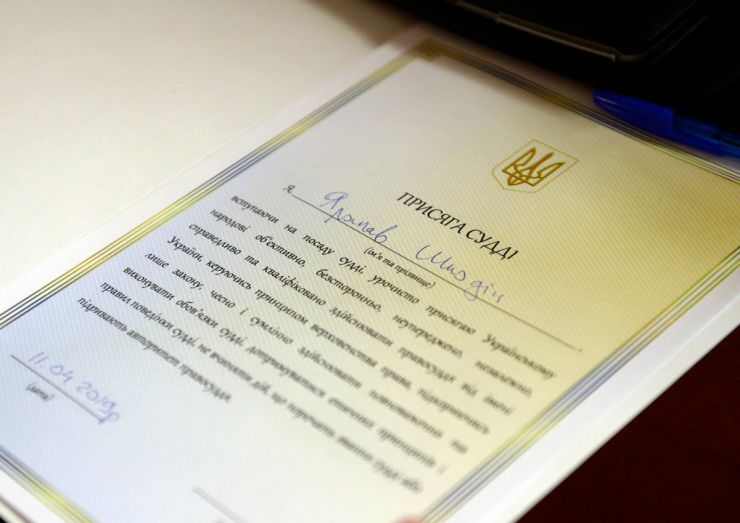 ПРИСЯГА СУДДІ
Я, Ярослав
(ім'я та прізвище)
вступаючи на посаду судді, урочисто присягаю Українському
народові об'єктивно, безсторонньо, неупереджено, незалежно,
справедливо та кваліфіковано здійснювати правосуддя від імені
України, керуючись принципом верховенства права, підкоряючись
лише закону, чесно і сумлінно здійснювати повноваження та
виконувати обов'язки судді, дотримуватися етичних принципів і
правил поведінки судді, не вчиняти дій, що порочать звання судді або
підривають авторитет правосуддя.
11.04 2019р
(дата)